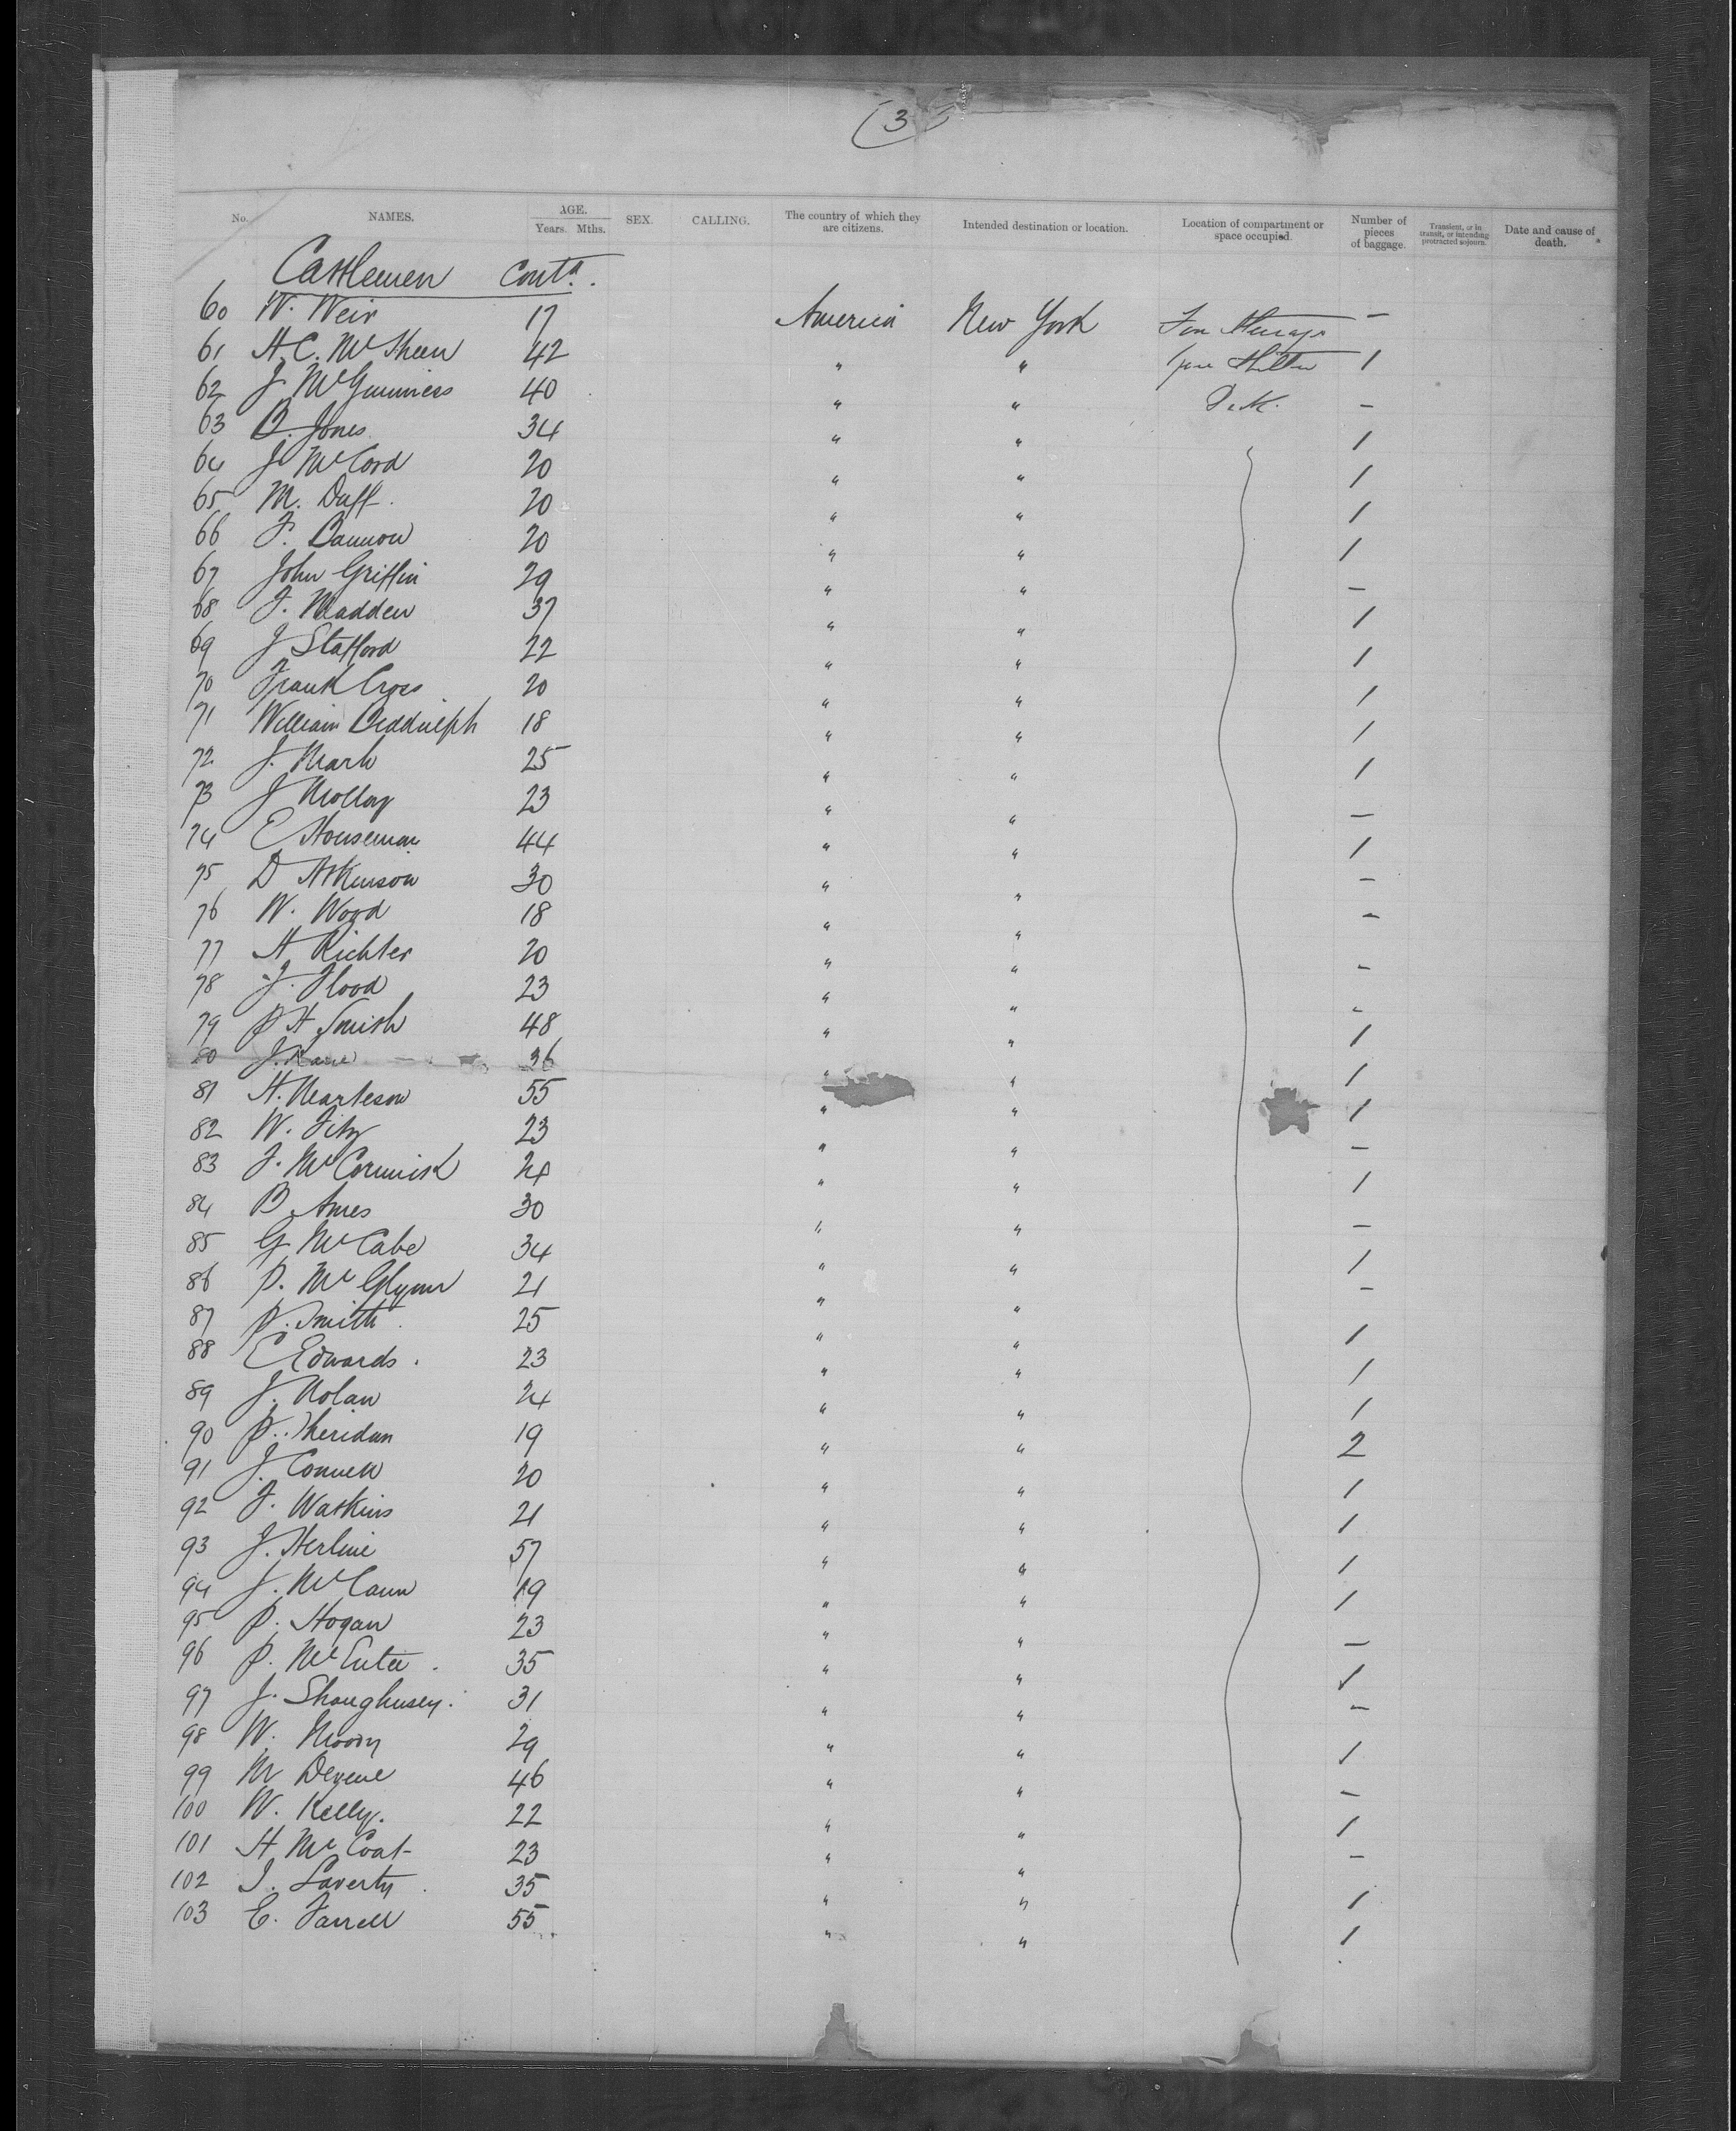 (3)
No. NAMES. AGE. Years. Mths. SEX. CALLING. The country of which they are citizens. Intended destination or location. Location of compartment or space occupied. Number of pieces of baggage. Transient, or in transit, or intending protracted sojourn. Date and cause of death.
Cattlemen Contd.
60 W. Weir 17 America New York Fore Steerage –
61 H.C. McSheen 42 " " 1
62 J McGuinness 40 " " Deck. –
63 B. Jones 34 " " 1
64 J McCord 20 " " 1
65 M. Duff. 20 " " 1
66 F. Bannon 20 " " 1
67 John Griffin 29 " " –
68 F. Madden 37 " " 1
69 J Stafford 22 " " 1
70 Frank Cross 20 " " 1
71 William Biddulph 18 " " 1
72 J. Mark 25 " " 1
73 J Molloy 23 " " –
74 E Houseman 44 " " 1
75 D Atkinson 30 " " –
76 W. Wood 18 " " –
77 H Richter 20 " " –
78 J. Flood 23 " " –
79 P H Smith 48 " " 1
80 J. Kane 36 " " 1
81 H. Marteson 55 " " 1
82 W. Fitz 23 " " –
83 F. McCormick 24 " " 1
84 B. Ames 30 " " –
85 G McCabe 34 " " 1
86 P. McGlynn 21 " " –
87 P. Smith. 25 " " 1
88 C Edwards. 23 " " 1
89 J. Nolan 24 " " 1
90 P. Sheridan 19 " " 2
91 J. Connell 20 " " 1
92 F. Watkins 21 " " 1
93 J. Herline 57 " " 1
94 J. McCann 19 " " 1
95 P. Hogan 23 " " –
96 P. McEntee. 35 " " 1
97 J. Shaughnsey. 31 " " –
98 W. Moory 29 " " 1
99 M Devene 46 " " –
100 W. Kelly. 22 " " 1
101 H McCoat 23 " " –
102 J. Laverty. 35 " " 1
103 E. Farrell 55 " " 1